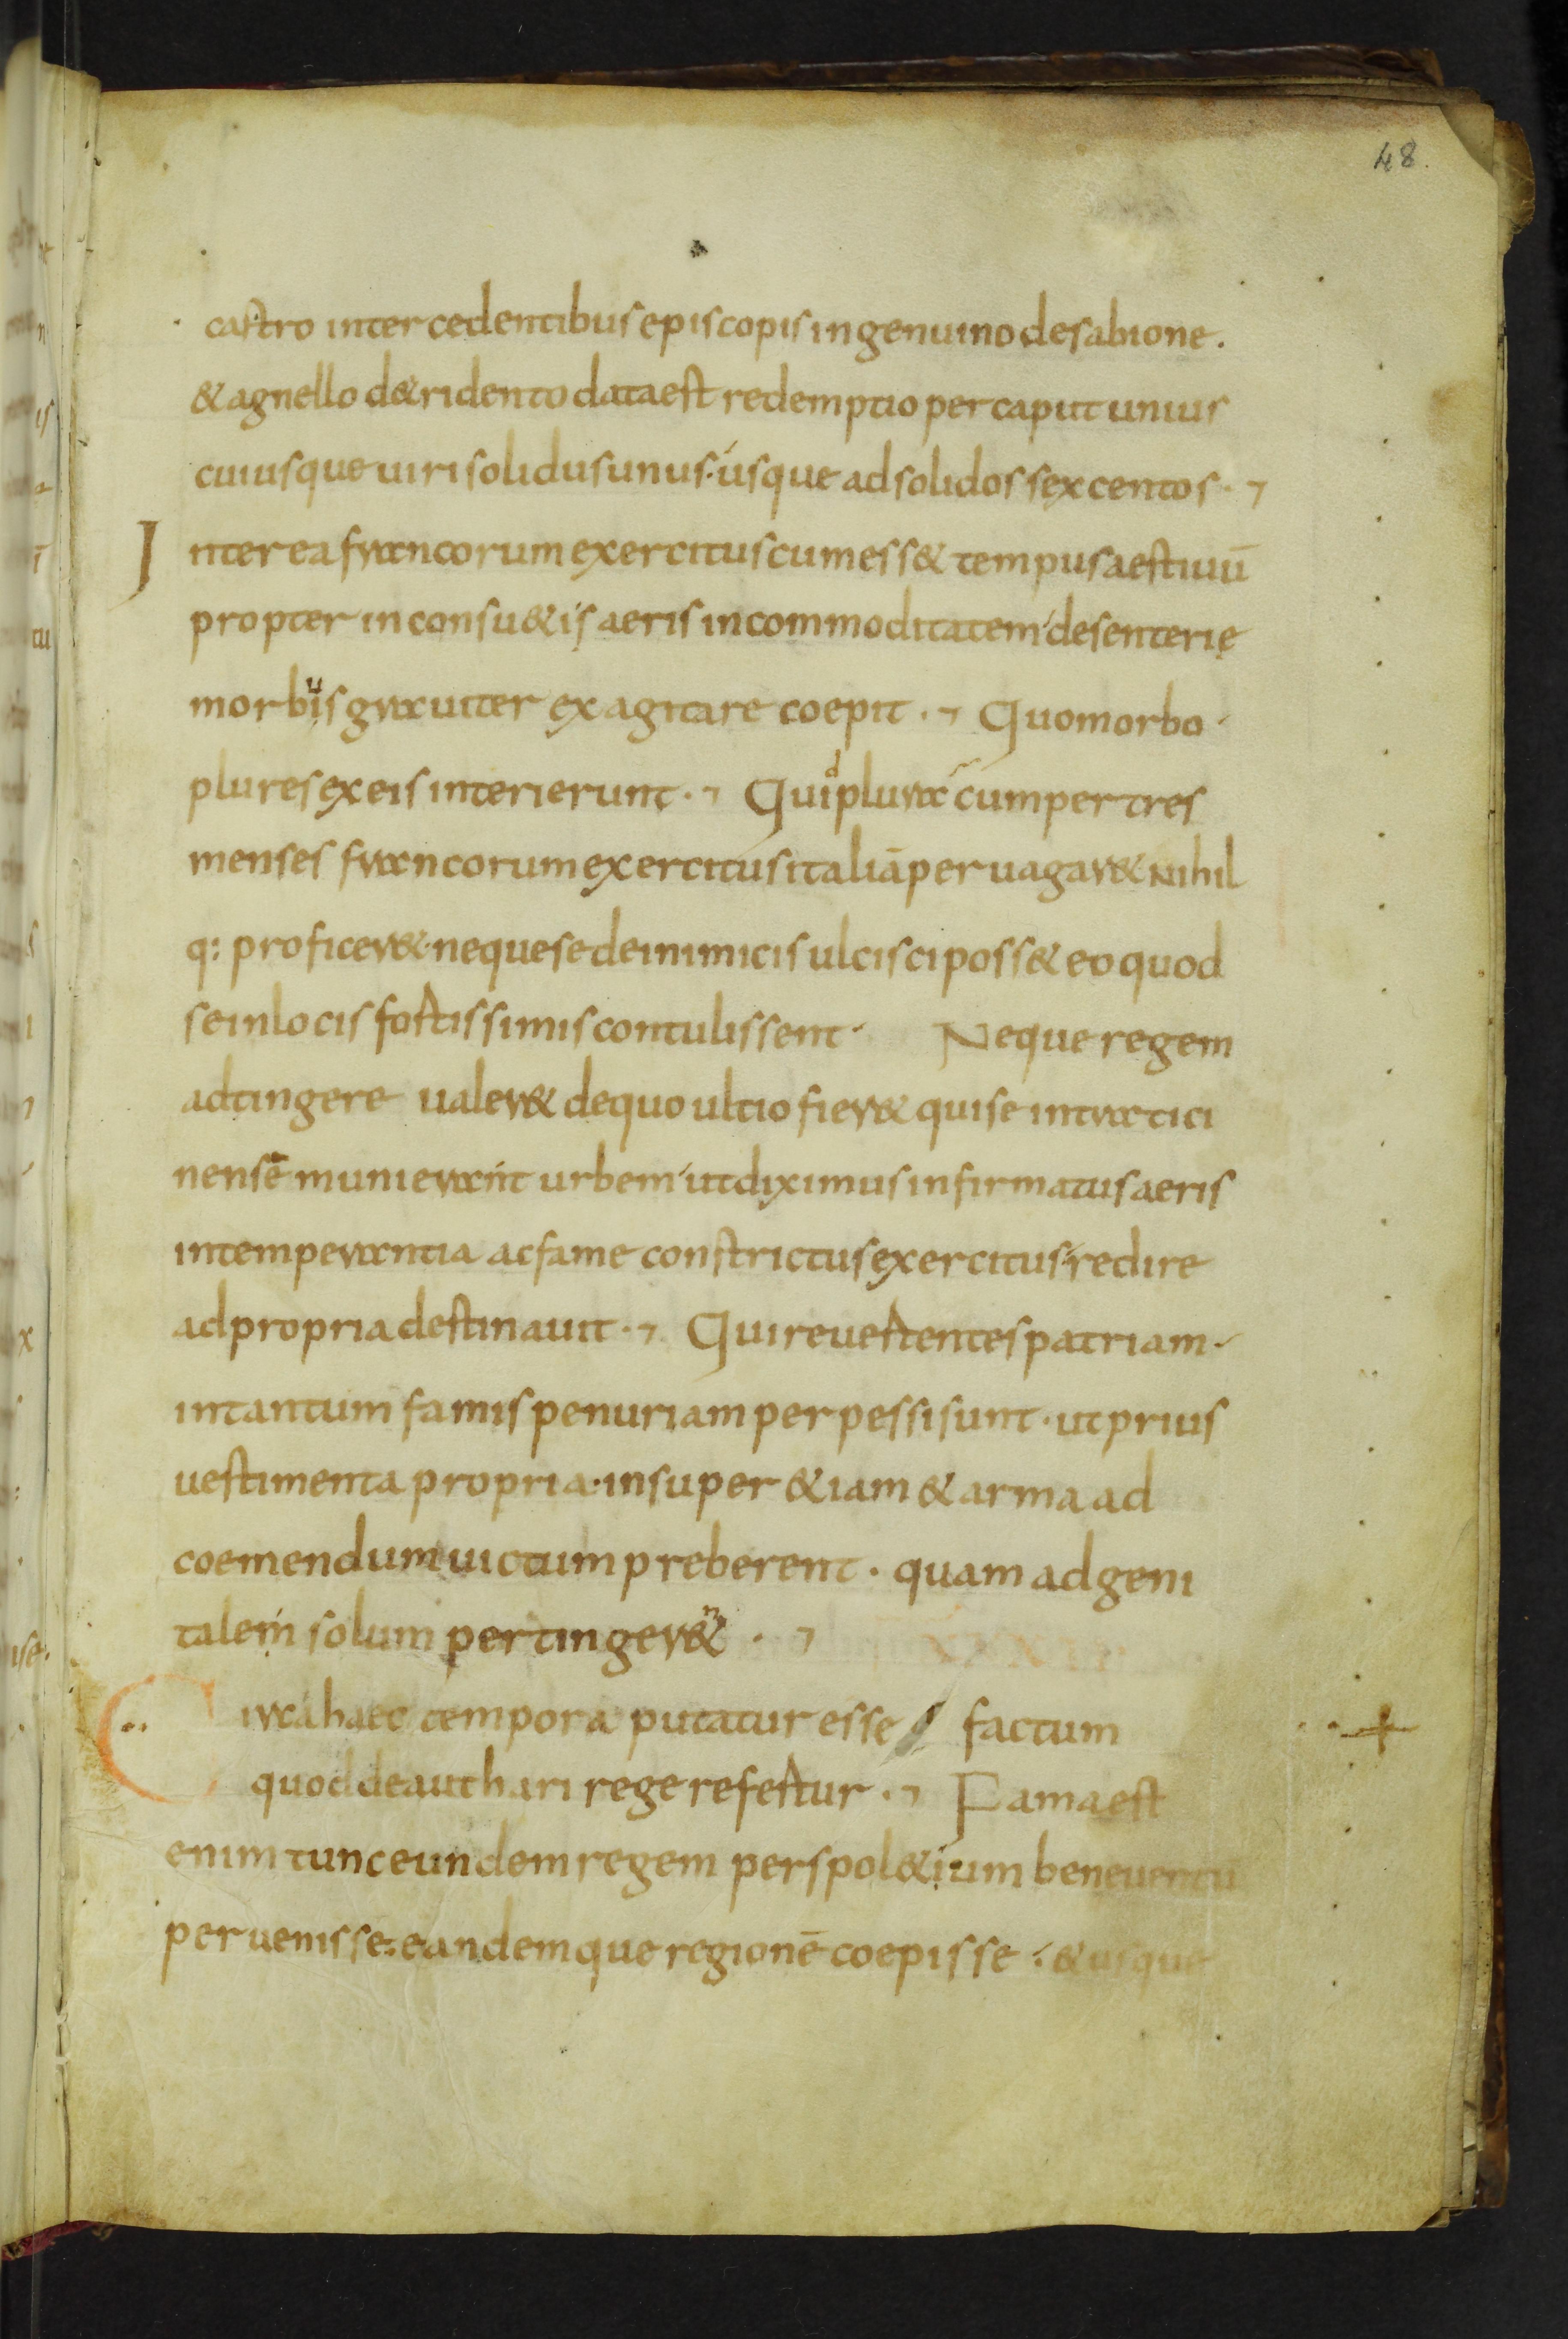 48.
castro intercedentibus episcopis ingenuino desabione.
& agnello d& ridento data est redemptio per caput unius
cuiusque uiri solidus unus· usque ad solidos sexcentos·
Interea francorum exercitus cum ess& tempus aestiuū
propter inconsu&is aeris incommoditatem desenterię
morbis grauiter exagitare coepit· Quo morbo·
plures ex eis interierunt· Quid plura cum per tres
menses francorum exercitus italiā peruagar& nihil
q: proficer&· neque se de inimicis ulcisci poss& eo quod
se in locis fortissimis contulissent· Neque regem
adtingere ualer& de quo ultio fier& qui se intra tici
nensē munierant urbem ut diximus infirmatus aeris
intemperantia ac fame constrictus exercitus redire
ad propria destinauit· Qui reuertentes patriam·
in tantum famis penuriam perpessi sunt· ut prius
uestimenta propria· insuper &iam & arma ad
coemendum uictum preberent· quam ad geni
talem solum pertinger&n·
Circa haec tempora putatur esse factum
quod de authari rege refertur· Fama est
enim tunc eundem regem per spol&ium beneuentū
peruenisse: eandemque regionē coepisse· & usque